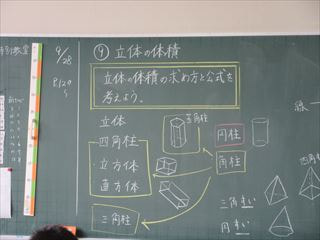 9/28
P.120
⑨ 立体の体積
立体の体積の求め方と公式を
考えよう。
立体
四角柱
立方体
直方体
三角柱
五角柱
円柱
角柱
三角すい
円すい